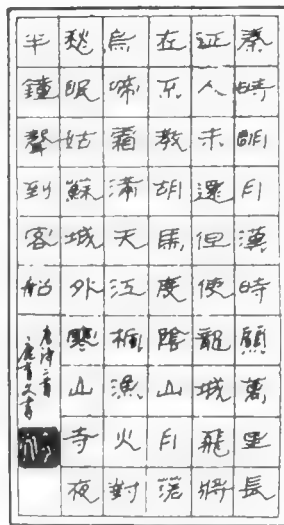 秦時明月漢時關萬里長
征人未還但使龍城飛將
在不教胡馬度陰山月落
烏啼霜滿天江楓漁火對
愁眠姑蘇城外寒山寺夜
半鐘聲到客船
唐詩二首